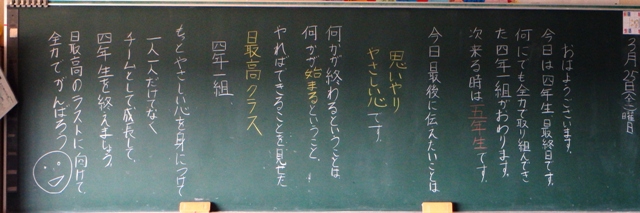 3月24日(金)曜日
おはようございます。
今日は四年生、最終日です。
何にでも全力で取り組んできた四年一組がおわります。
次来る時は五年生です。
今日最後に伝えたいことは
思いやり
やさしい心です。
何かが終わるということは、
何かが始まるということ。
やればできることを見せた
最高クラス
四年一組。
もっとやさしい心を身につけて
一人一人だけでなく
チームとして成長して、
四年生を終えましょう。
最高のラストに向けて、
全力でがんばろう